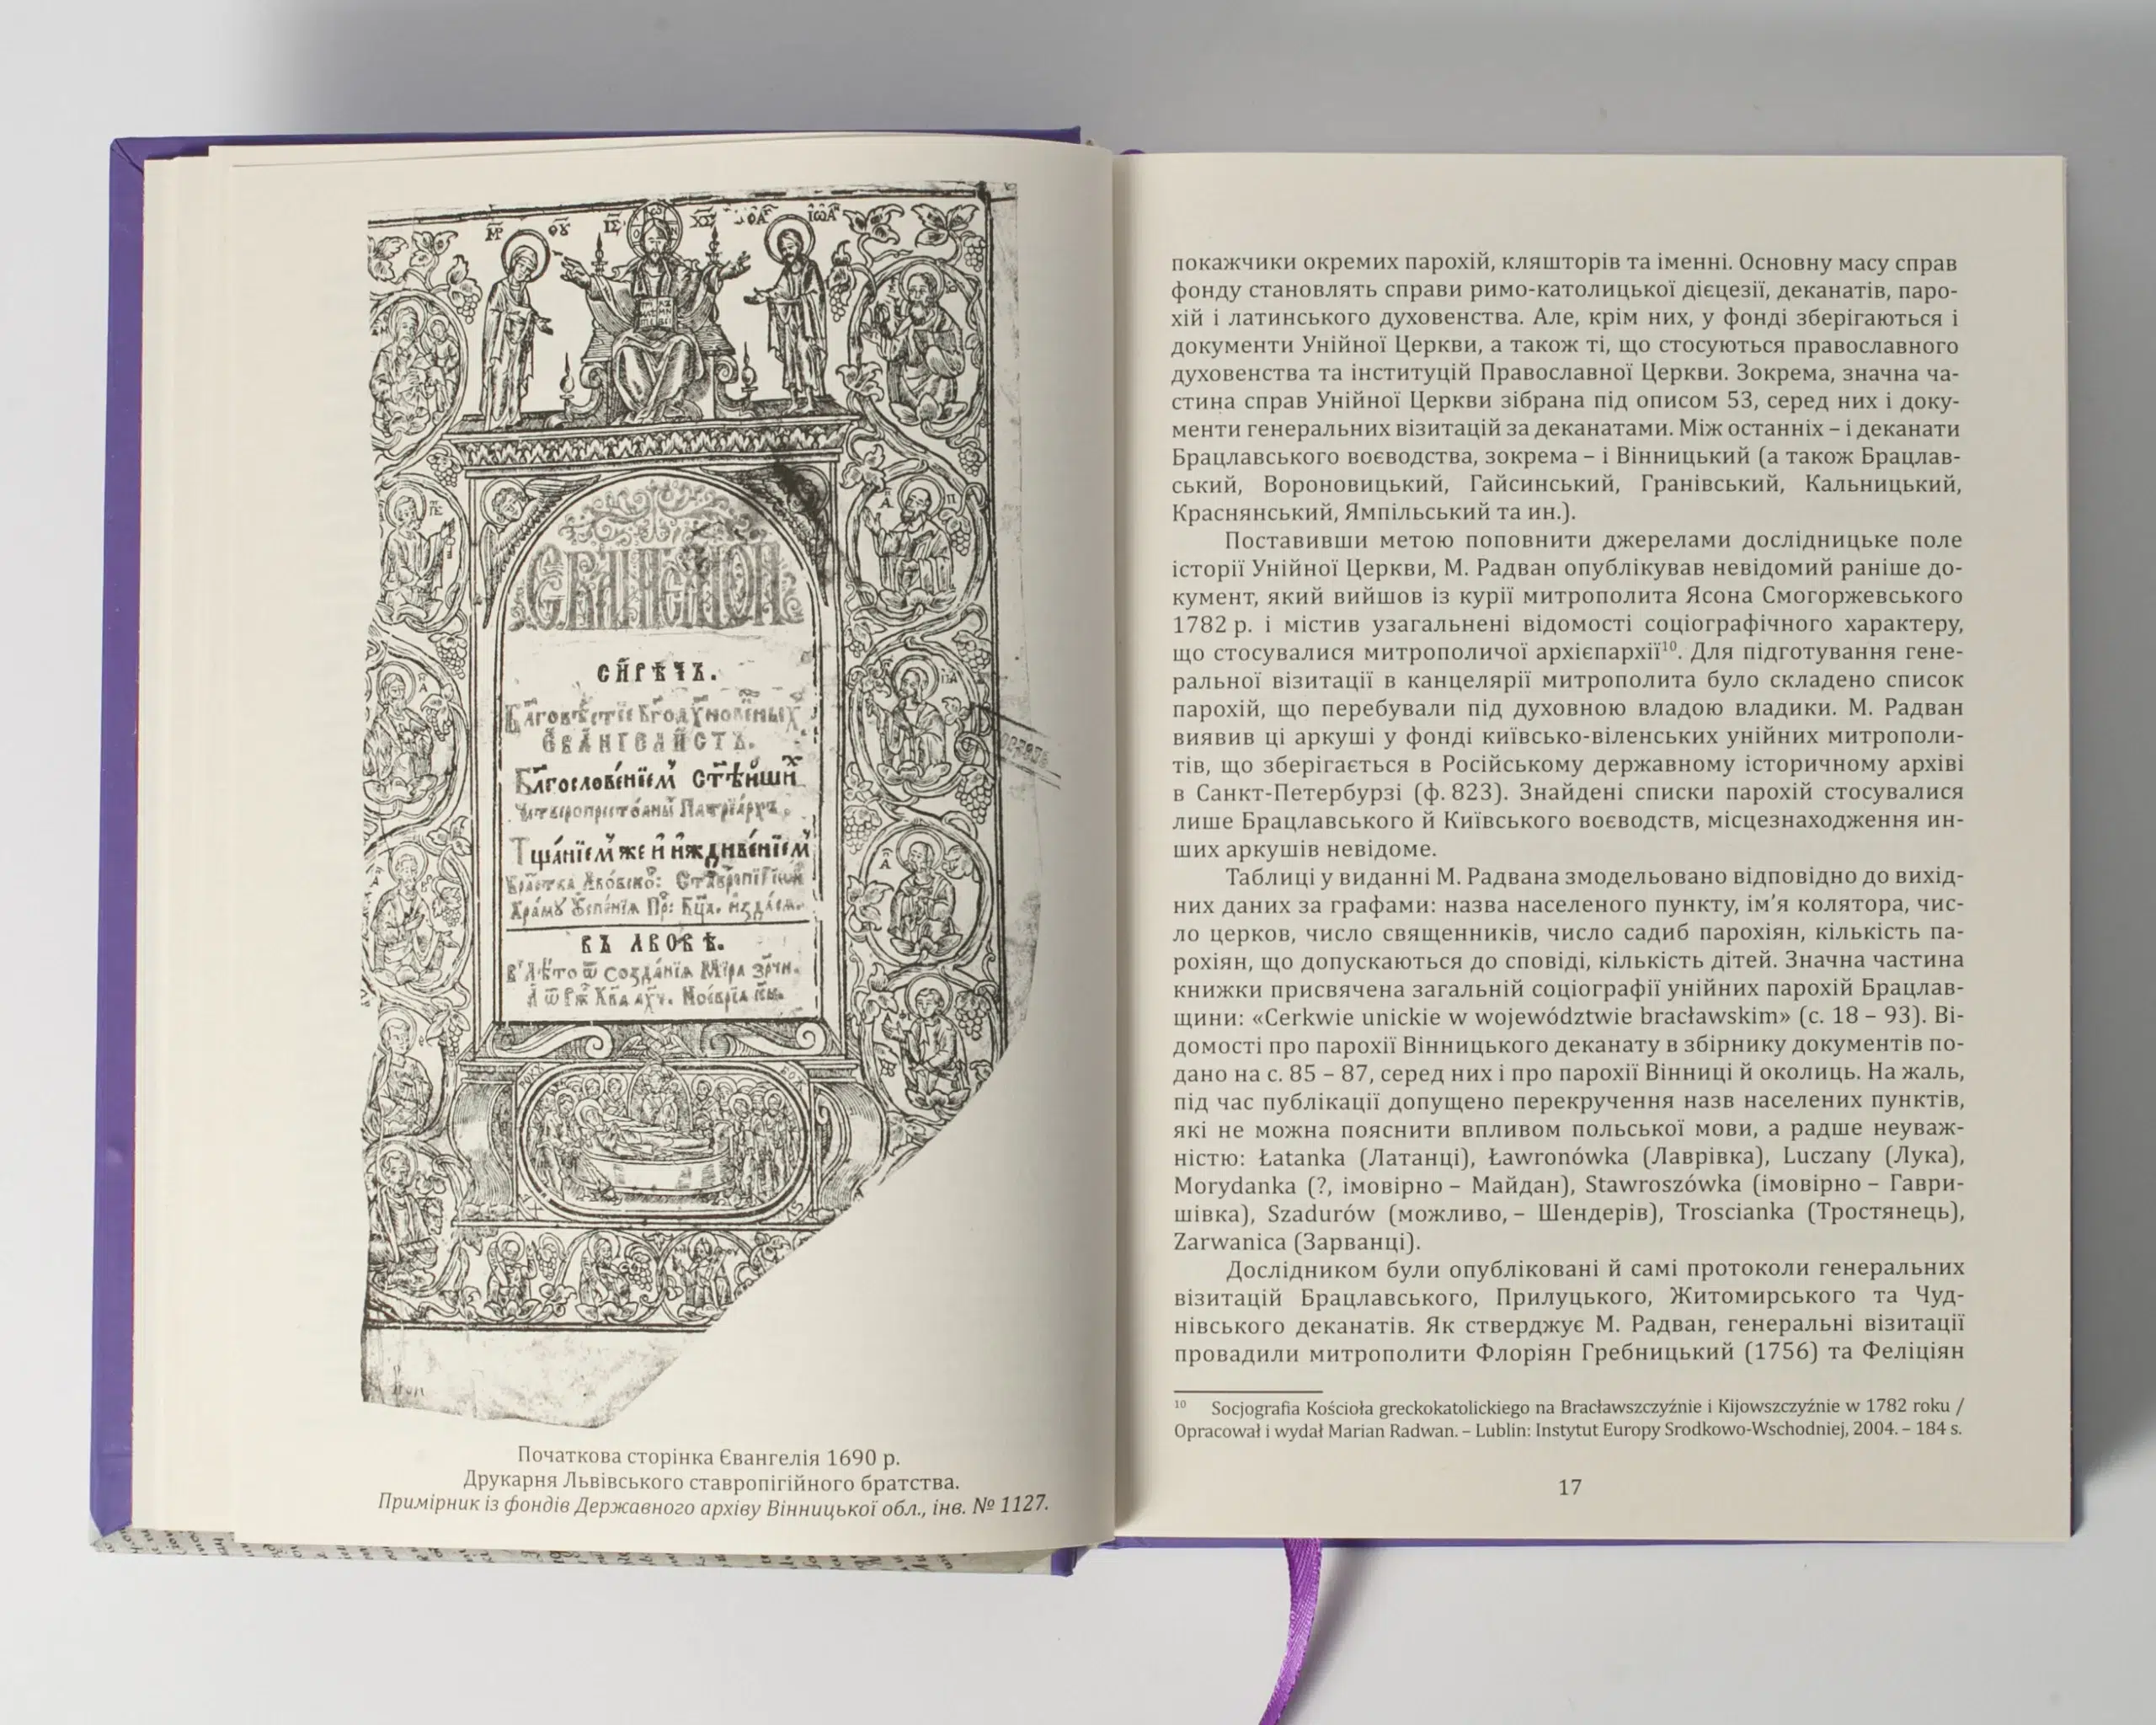 ІС ХС
СИРѢЧЪ.
ЕВАНГЕЛИСТЪ.
ВЪ ЛВОВѢ.
Початкова сторінка Євангелія 1690 р.
Друкарня Львівського ставропігійного братства.
Примірник із фондів Державного архіву Вінницької обл., інв. № 1127.
покажчики окремих парохій, кляшторів та іменні. Основну масу справ
фонду становлять справи римо-католицької дієцезії, деканатів, паро-
хій і латинського духовенства. Але, крім них, у фонді зберігаються і
документи Унійної Церкви, а також ті, що стосуються православного
духовенства та інституцій Православної Церкви. Зокрема, значна ча-
стина справ Унійної Церкви зібрана під описом 53, серед них і доку-
менти генеральних візитацій за деканатами. Між останніх – і деканати
Брацлавського воєводства, зокрема – і Вінницький (а також Брацлав-
ський, Вороновицький, Гайсинський, Гранівський, Кальницький,
Краснянський, Ямпільський та ин.).
Поставивши метою поповнити джерелами дослідницьке поле
історії Унійної Церкви, М. Радван опублікував невідомий раніше до-
кумент, який вийшов із курії митрополита Ясона Смогоржевського
1782 р. і містив узагальнені відомості соціографічного характеру,
що стосувалися митрополичої архієпархії¹⁰. Для підготування гене-
ральної візитації в канцелярії митрополита було складено список
парохій, що перебували під духовною владою владики. М. Радван
виявив ці аркуші у фонді київсько-віленських унійних митрополи-
тів, що зберігається в Російському державному історичному архіві
в Санкт-Петербурзі (ф. 823). Знайдені списки парохій стосувалися
лише Брацлавського й Київського воєводств, місцезнаходження ин-
ших аркушів невідоме.
Таблиці у виданні М. Радвана змодельовано відповідно до вихід-
них даних за графами: назва населеного пункту, ім’я колятора, чис-
ло церков, число священників, число садиб парохіян, кількість па-
рохіян, що допускаються до сповіді, кількість дітей. Значна частина
книжки присвячена загальній соціографії унійних парохій Брацлав-
щини: «Cerkwie unickie w województwie bracławskim» (с. 18 – 93). Ві-
домості про парохії Вінницького деканату в збірнику документів по-
дано на с. 85 – 87, серед них і про парохії Вінниці й околиць. На жаль,
під час публікації допущено перекручення назв населених пунктів,
які не можна пояснити впливом польської мови, а радше неуваж-
ністю: Łatanka (Латанці), Ławronówka (Лаврівка), Luczany (Лука),
Morydanka (?, імовірно – Майдан), Stawroszówka (імовірно – Гаври-
шівка), Szadurów (можливо, – Шендерів), Troscianka (Тростянець),
Zarwanica (Зарванці).
Дослідником були опубліковані й самі протоколи генеральних
візитацій Брацлавського, Прилуцького, Житомирського та Чуд-
нівського деканатів. Як стверджує М. Радван, генеральні візитації
провадили митрополити Флоріян Гребницький (1756) та Феліціян
¹⁰ Socjografia Kościoła greckokatolickiego na Bracławszczyźnie i Kijowszczyźnie w 1782 roku /
Opracował i wydał Marian Radwan. – Lublin: Instytut Europy Srodkowo-Wschodniej, 2004. – 184 s.
17